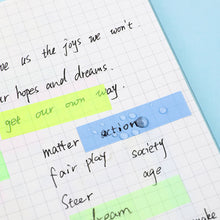 ve us the joys we won't
ur hopes and dreams.
get our own way.
matter action
fair play society
Steer age
dream